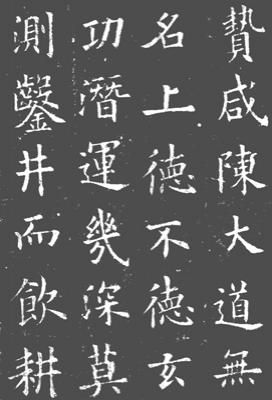 贄咸陳大道無
名上徳不德玄
功潛運幾深莫
測鑿井而飲耕